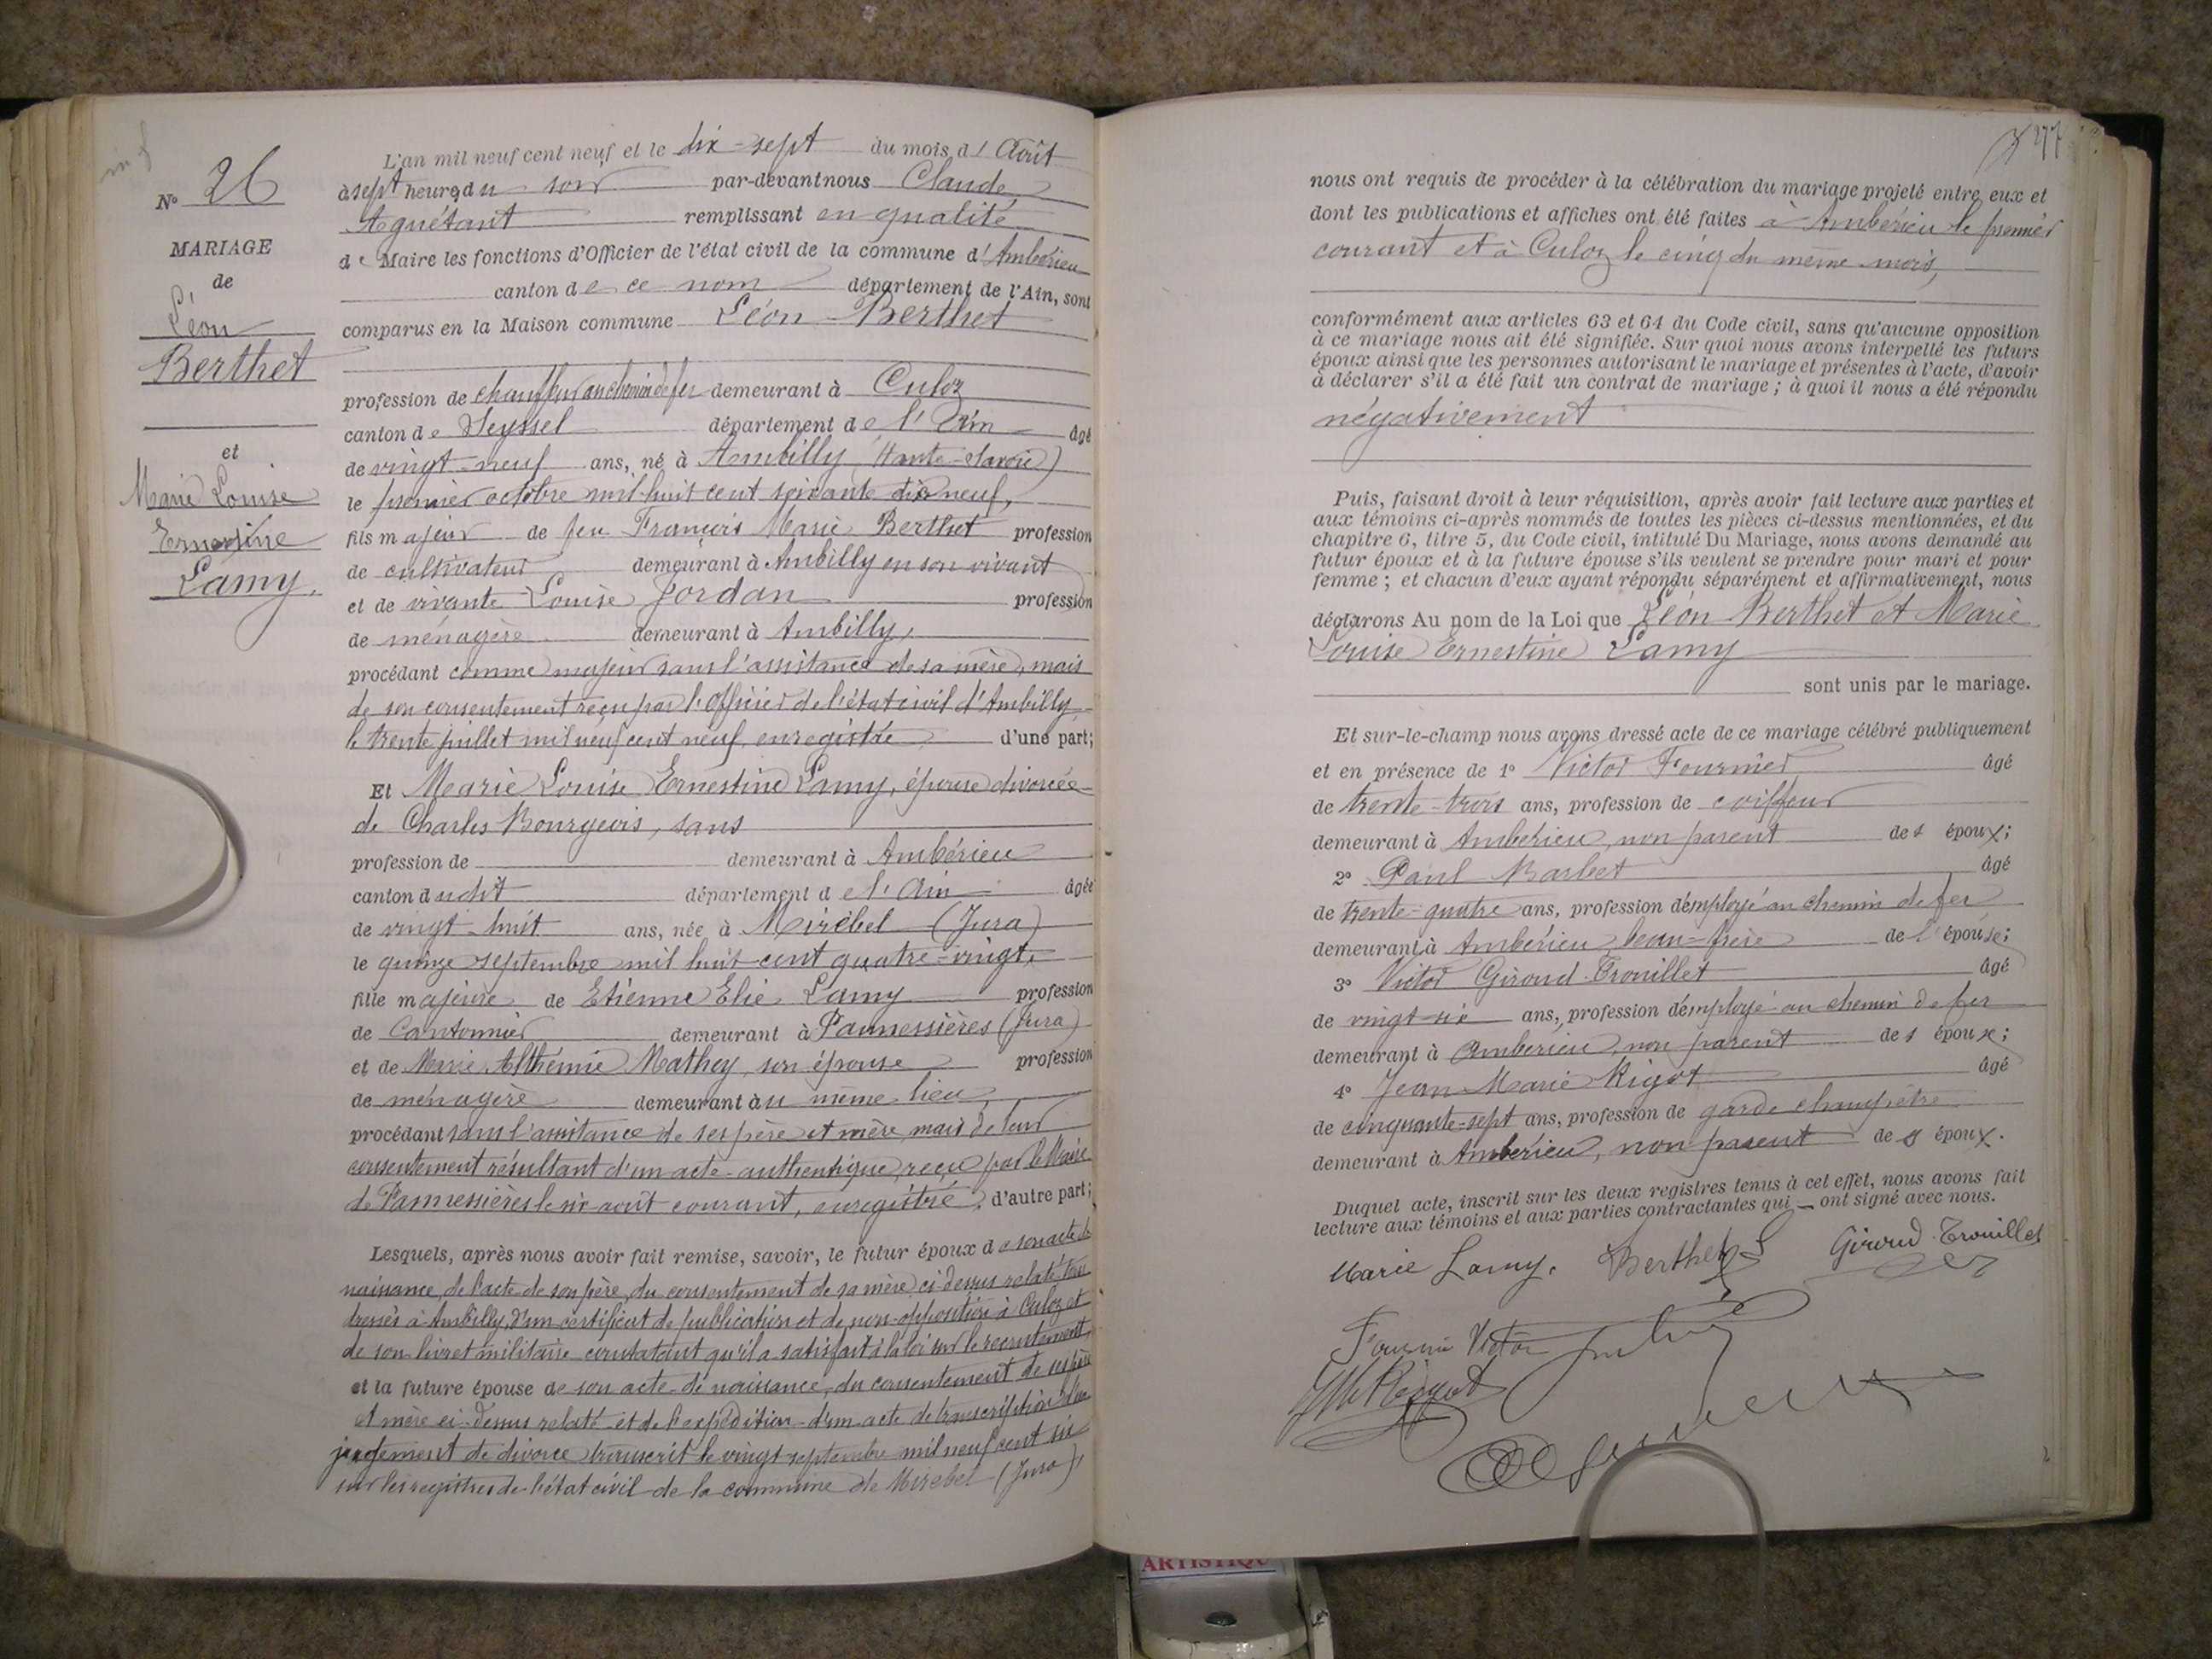 N° 26
MARIAGE
de
Léon
Berthet
et
Marie Louise
Ernestine
Lamy.
L'an mil neuf cent neuf et le dix-sept du mois d'Août
à sept heures du soir par-devant nous Claude
Aguétant remplissant en qualité
de Maire les fonctions d'Officier de l'état civil de la commune d'Ambérieu
canton de ce nom département de l'Ain, sont
comparus en la Maison commune Léon Berthet
profession de chauffeur au chemin de fer demeurant à Culoz
canton de Seyssel département de l'Ain âgé
de vingt-neuf ans, né à Ambilly (Haute-Savoie)
le premier octobre mil huit cent soixante dix neuf,
fils majeur de feu François Marie Berthet profession
de cultivateur demeurant à Ambilly en son vivant
et de vivante Louise Jordan profession
de ménagère demeurant à Ambilly,
procédant comme majeur sans l'assistance de sa mère, mais
de son consentement reçu par l'Officier de l'état civil d'Ambilly,
le trente juillet mil neuf cent neuf, enregistré d'une part;
Et Marie Louise Ernestine Lamy, épouse divorcée
de Charles Bourgeois, sans
profession de demeurant à Ambérieu
canton dudit département de l'Ain âgée
de vingt-huit ans, née à Mirebel (Jura)
le quinze septembre mil huit cent quatre-vingt,
fille majeure de Etienne Elie Lamy profession
de Cantonnier demeurant à Pannessières (Jura)
et de Marie Althémie Mathey, son épouse profession
de ménagère demeurant au même lieu,
procédant sans l'assistance de ses père et mère, mais de leur
consentement résultant d'un acte authentique, reçu par le Maire
de Pannessières le six août courant, enregistré, d'autre part;
Lesquels, après nous avoir fait remise, savoir, le futur époux de son acte de
naissance, de l'acte de son père, du consentement de sa mère ci-dessus relaté, tous
dressés à Ambilly, d'un certificat de publication et de non-opposition à Culoz et
de son livret militaire constatant qu'il a satisfait à la loi sur le recrutement,
et la future épouse de son acte de naissance, du consentement de ses père
et mère ci-dessus relaté et de l'expédition d'un acte de transcription d'un
jugement de divorce transcrit le vingt septembre mil neuf cent six
sur les registres de l'état civil de la commune de Mirebel (Jura),
277
nous ont requis de procéder à la célébration du mariage projeté entre eux et
dont les publications et affiches ont été faites à Ambérieu le premier
courant et à Culoz le cinq du même mois,
conformément aux articles 63 et 64 du Code civil, sans qu'aucune opposition
à ce mariage nous ait été signifiée. Sur quoi nous avons interpellé les futurs
époux ainsi que les personnes autorisant le mariage et présentes à l'acte, d'avoir
à déclarer s'il a été fait un contrat de mariage ; à quoi il nous a été répondu
négativement
Puis, faisant droit à leur réquisition, après avoir fait lecture aux parties et
aux témoins ci-après nommés de toutes les pièces ci-dessus mentionnées, et du
chapitre 6, titre 5, du Code civil, intitulé Du Mariage, nous avons demandé au
futur époux et à la future épouse s'ils veulent se prendre pour mari et pour
femme ; et chacun d'eux ayant répondu séparément et affirmativement, nous
déclarons Au nom de la Loi que Léon Berthet et Marie
Louise Ernestine Lamy
sont unis par le mariage.
Et sur-le-champ nous avons dressé acte de ce mariage célébré publiquement
et en présence de 1° Victor Fournier âgé
de trente-trois ans, profession de coiffeur
demeurant à Ambérieu, non parent des époux;
2° Paul Barbet âgé
de trente-quatre ans, profession d'employé au chemin de fer
demeurant à Ambérieu, beau-frère de l'épouse;
3° Victor Giroud-Trouillet âgé
de vingt-six ans, profession d'employé au chemin de fer
demeurant à Ambérieu, non parent des époux;
4° Jean Marie Rigot âgé
de cinquante-sept ans, profession de garde champêtre
demeurant à Ambérieu, non parent des époux.
Duquel acte, inscrit sur les deux registres tenus à cet effet, nous avons fait
lecture aux témoins et aux parties contractantes qui — ont signé avec nous.
Marie Lamy. Berthet L Giroud-Trouillet
Fournier Victor
JM Rigot
ARTISTIQU